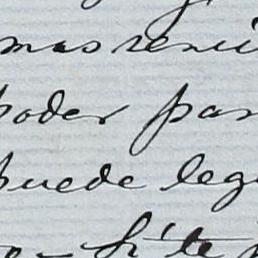 mas renci
poder par
puede leg